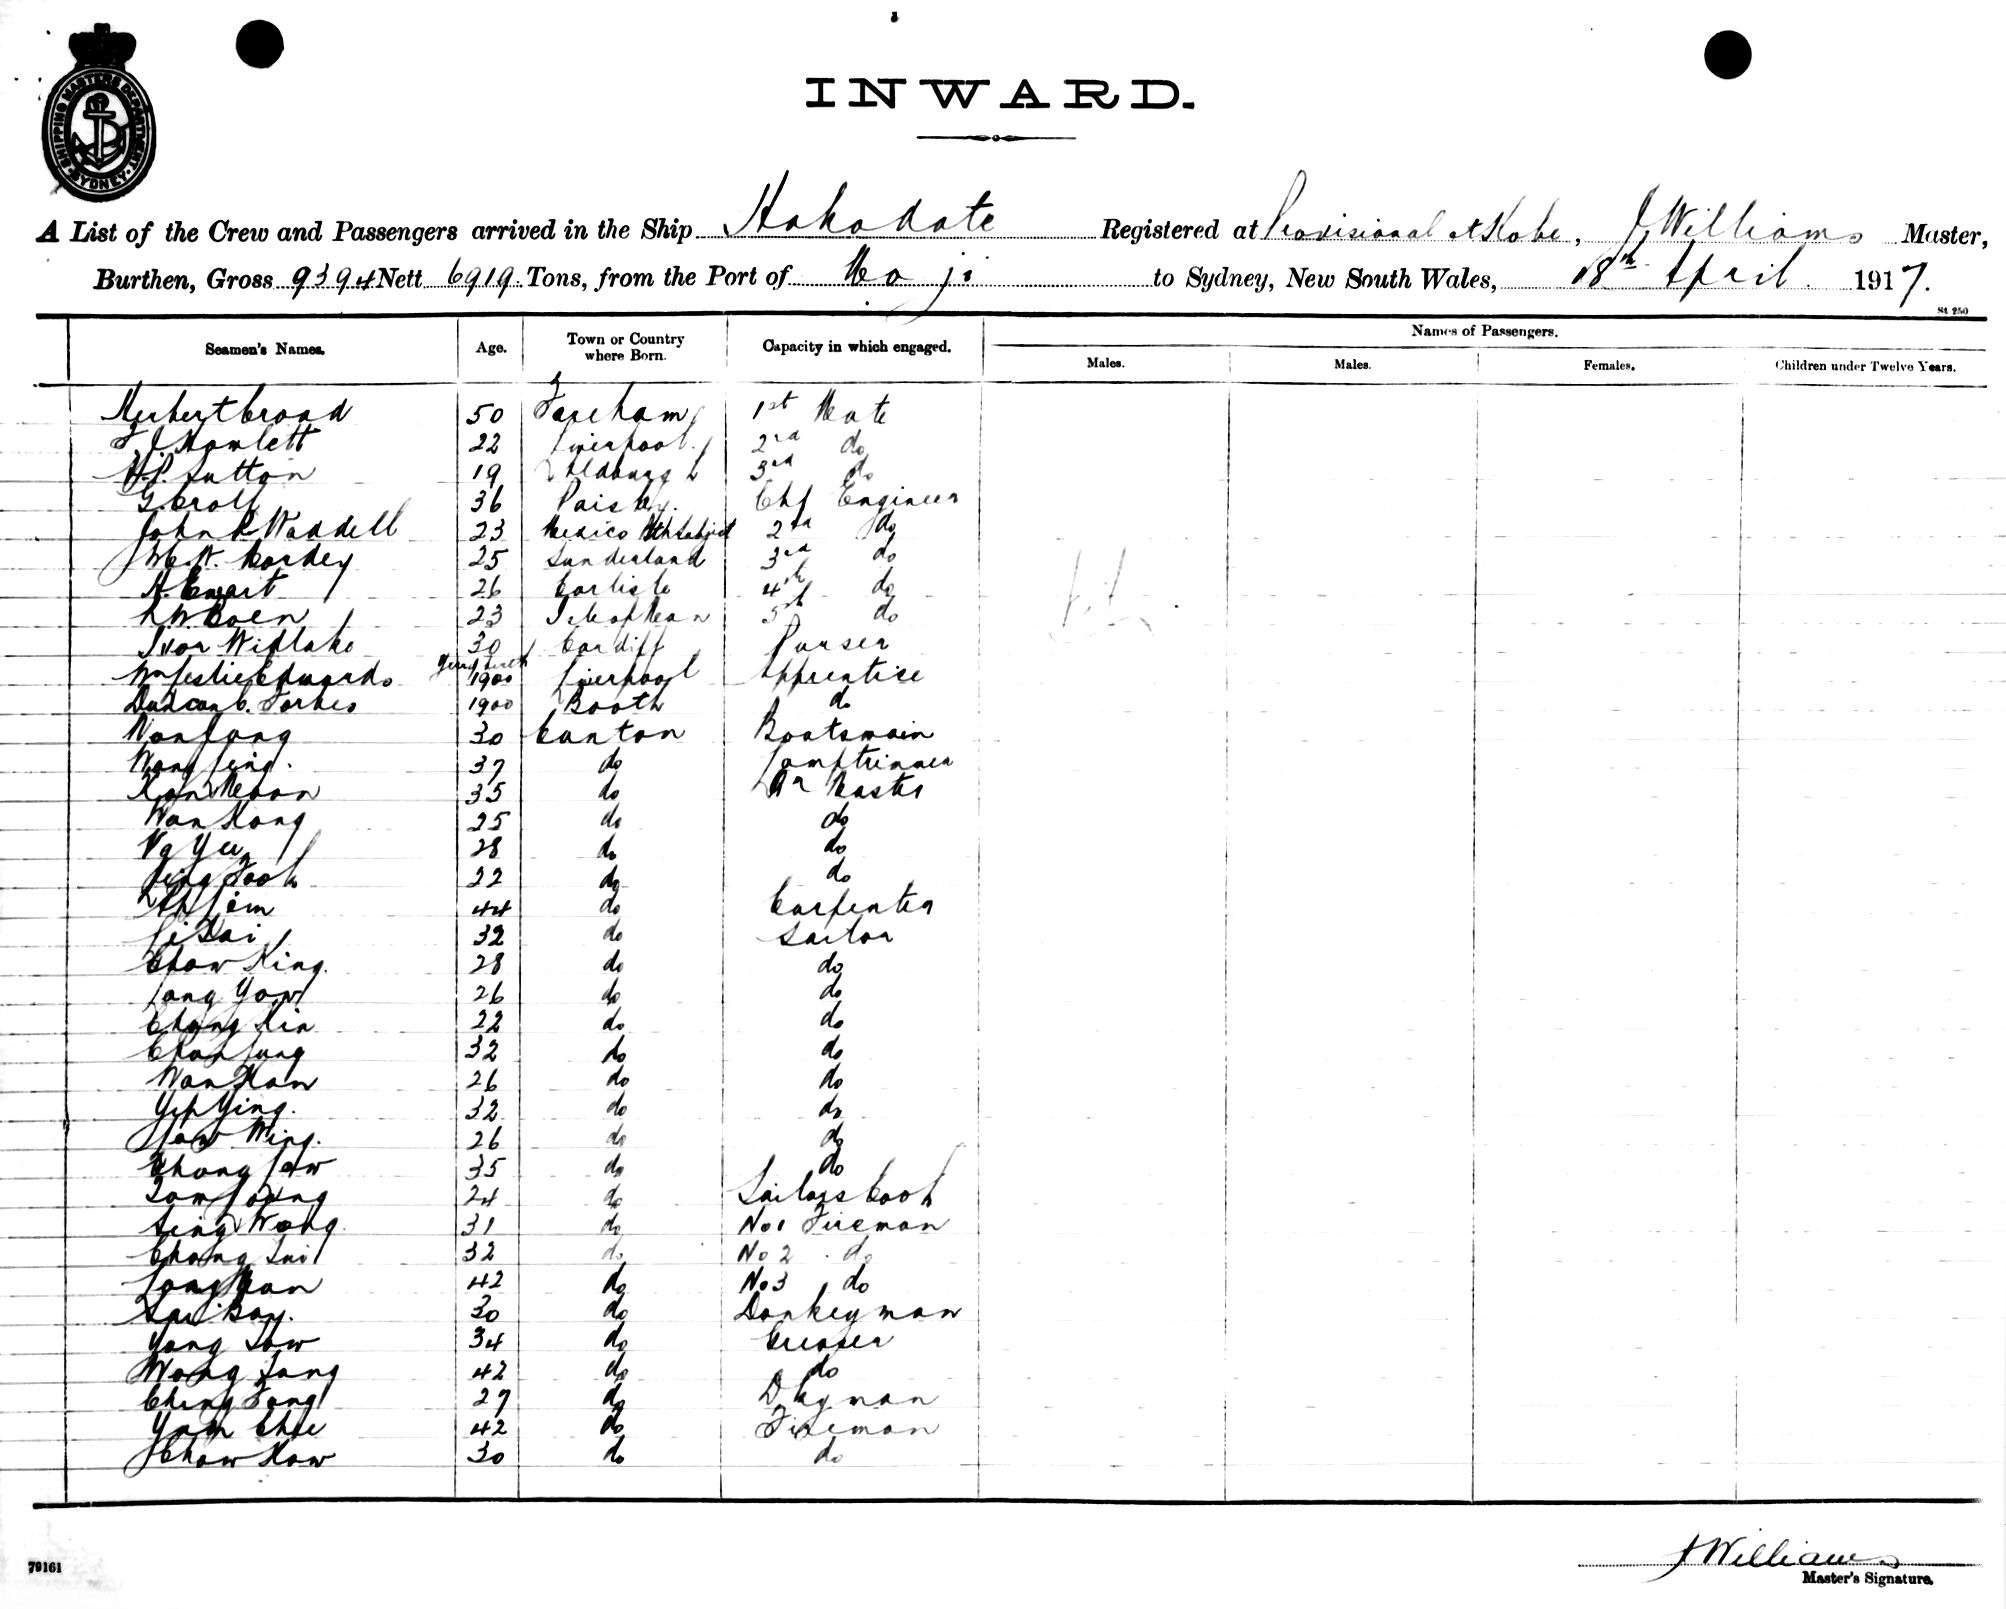 SHIPPING MASTERS DEPARTMENT SYDNEY
INWARD.
A List of the Crew and Passengers arrived in the Ship Hakodate Registered at Provisional at Kobe, J Williams Master,
Burthen, Gross 9394 Nett 6919. Tons, from the Port of Moji to Sydney, New South Wales, 18th April 1917.
St 250
Seamen's Names. Age. Town or Country where Born. Capacity in which engaged. Names of Passengers.
Males. Males. Females. Children under Twelve Years.
Herbert Croad 50 Fareham 1st Mate
F. J. Howlett 22 Liverpool. 2nd do
H.P. Sutton 19 3rd do
G. Croll 36 Paisley. Chf Engineer
John R Waddell 23 Mexico 2nd do
25 Sunderland 3rd do
H. Ewart 26 Carlisle 4th do
23 I of Man 5th do
Ivor Widlake 30 Cardiff Purser
Wm Leslie Edwards 1900 Liverpool Apprentise
Duncan C. Forbes 1900 Booth do
Wan Fong 30 Canton Boatswain
Wong Ling. 37 do Lamptrimmer
Kan Moon 35 do Qr Master
Wan Hong 25 do do
Ng Yee 28 do do
Ling Fook 22 do do
Ah Sam 44 do Carpenter
Li Dai 32 do Sailor
Chow King. 28 do do
Long Yow 26 do do
Chong Kin 22 do do
Chan Lung 32 do do
Wan Ham 26 do do
Yip Ying. 32 do do
Low Wing. 26 do do
Chong Low 35 do do
Tom Loong 24 do Sailors Cook
Ling Wong. 31 do No 1 Fireman
Chong Sui 32 do No 2 do
Long Man 42 do No 3 do
30 do Donkeyman
Yong Sow 34 do Greaser
Wong Fang 42 do do
Ching Fong 27 do Dayman
Yam Chee 42 do Fireman
Chow How 30 do do
79161
J Williams
Master's Signature.